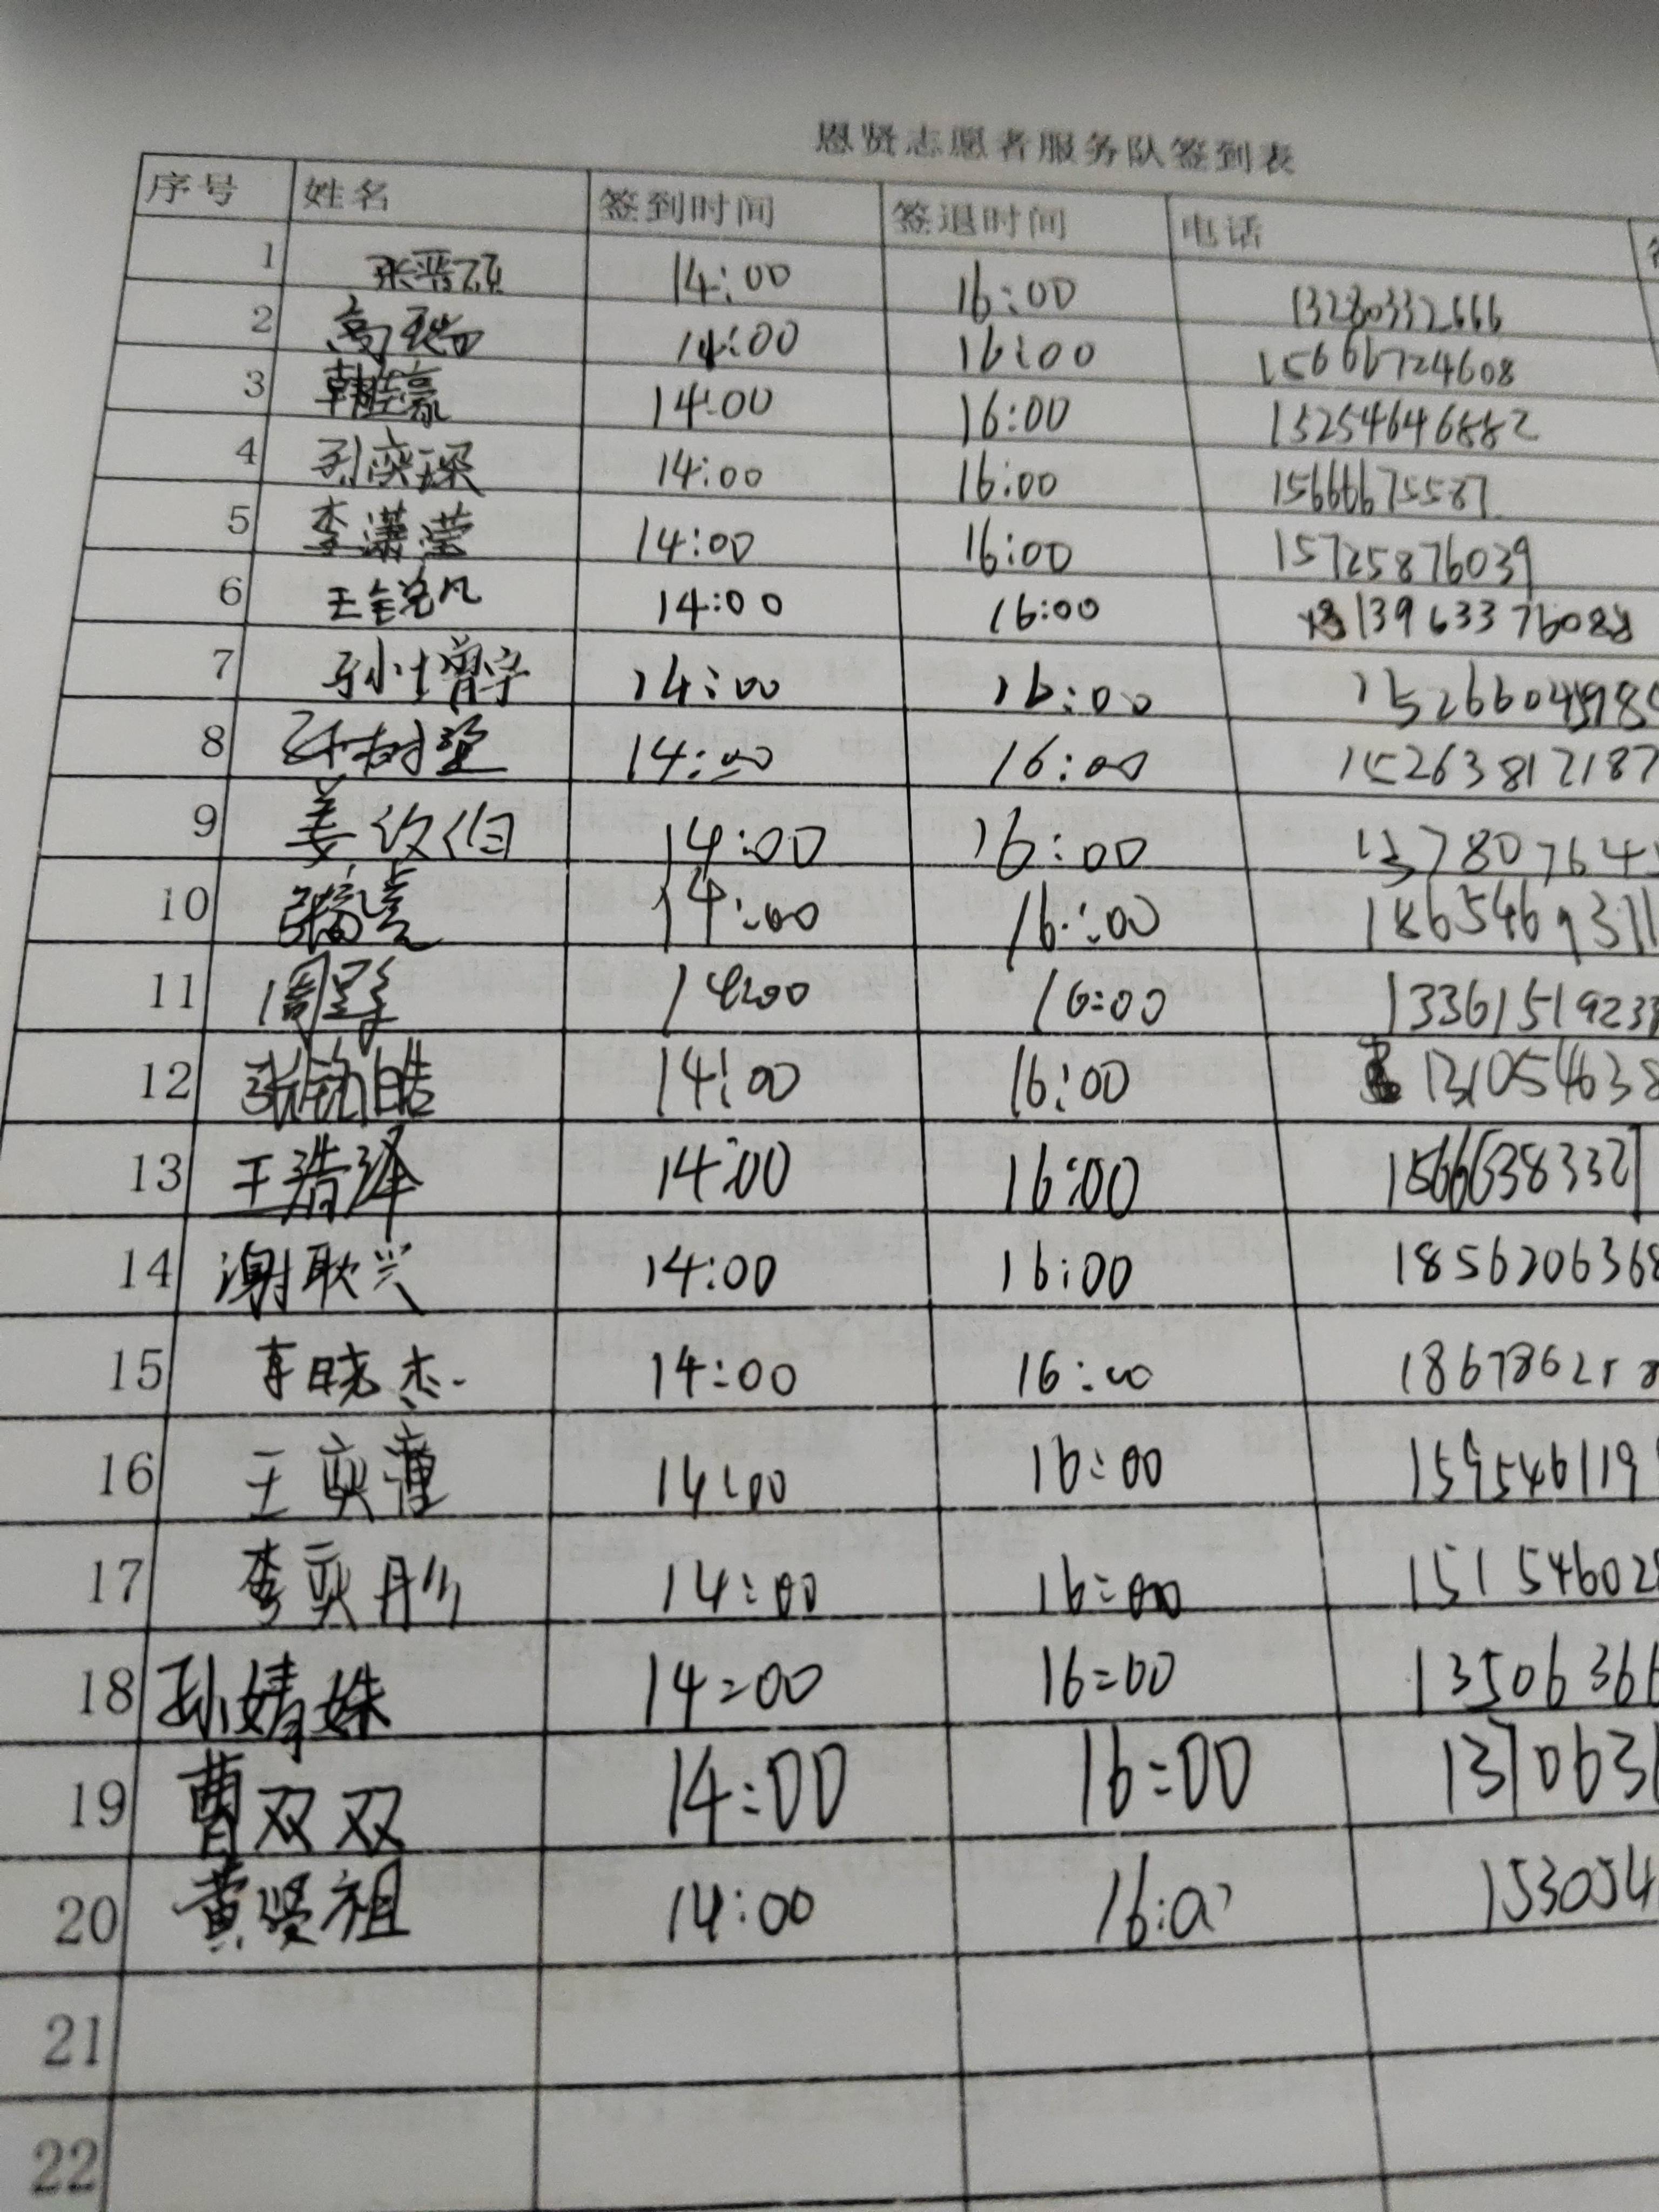 恩贤志愿者服务队签到表
序号 姓名 签到时间 签退时间 电话
1 张晋硕 14:00 16:00 13280332666
2 高瑞 14:00 16:00 15666724608
3 14:00 16:00 15254646882
4 孙奕琛 14:00 16:00 15666675587
5 李潇滢 14:00 16:00 15725876039
6 王锐凡 14:00 16:00 13963376088
7 孙增宇 14:00 16:00
8 14:00 16:00 15263812187
9 姜 伯 14:00 16:00 13780764
10 张 14:00 16:00 1865469311
11 周 14:00 16:00 1336151923
12 张 皓 14:00 16:00 131054638
13 王浩泽 14:00 16:00 15666383321
14 谢耿兴 14:00 16:00 1856206368
15 李晓杰 14:00 16:00 1867862
16 王奕潼 14:00 16:00 159546119
17 李奕彤 14:00 16:00 151546028
18 孙婧姝 14:00 16:00 13506366
19 曹双双 14:00 16:00 1370631
20 黄贤祖 14:00 16:00 153054
21
22